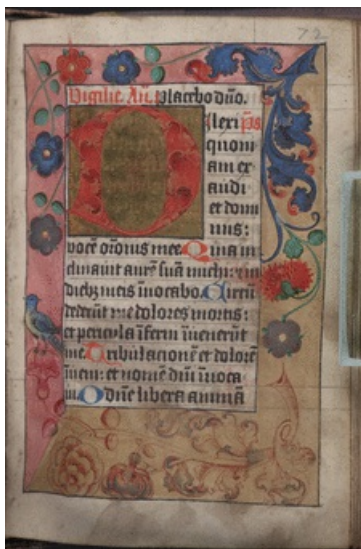 72
Vigilie. An̄. placebo dn̄o.
Dilexi p̄s
quoni
am ex
audi
et domi
nus:
vocē orōnis mee Quia in
clinauit aurē suā michi: et in
diebz meis īuocabo. Circū
dederūt me dolores mortis:
et pericula īferni īuenerūt
me. Tribulacionē et dolorē
īueni: et nomē dn̄i īuoca
ui. O dn̄e libera animā